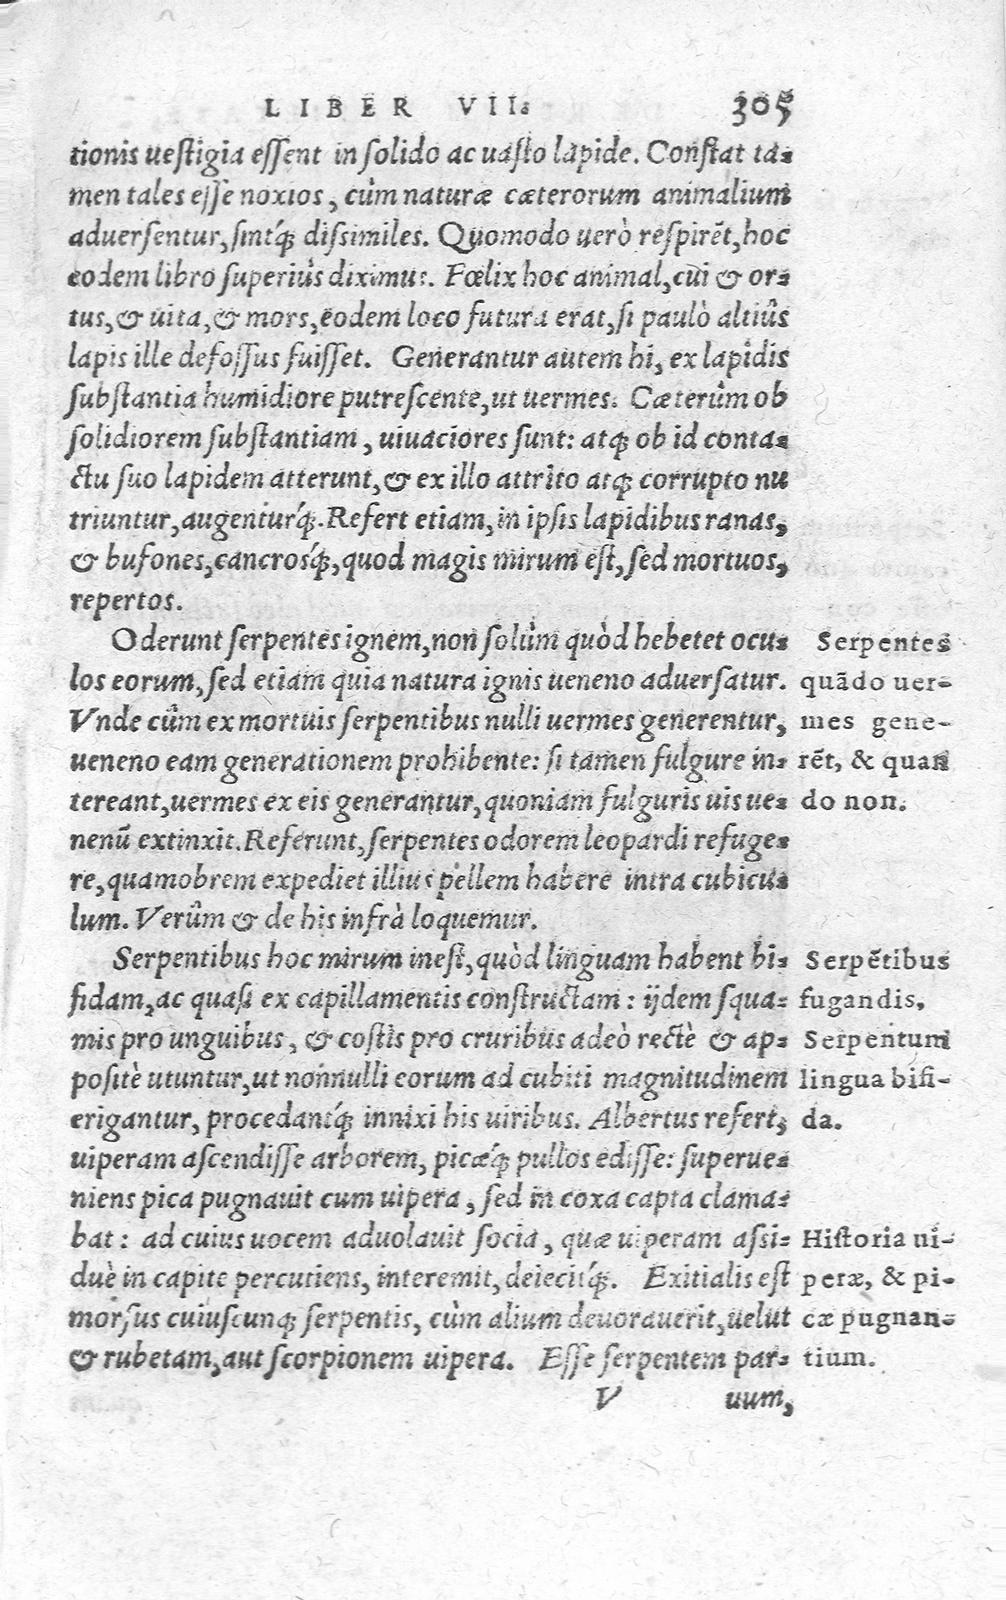 LIBER VII. 305
tionis uestigia essent in solido ac uasto lapide. Constat ta-
men tales esse noxios, cùm naturæ cæterorum animalium
aduersentur, sintq́; dissimiles. Quomodo uerò respirēt, hoc
eodem libro superiùs diximus. Fœlix hoc animal, cui & or-
tus, & uita, & mors, eodem loco futura erat, si paulò altiùs
lapis ille defossus fuisset. Generantur autem hi, ex lapidis
substantia humidiore putrescente, ut uermes. Cæterùm ob
solidiorem substantiam, uiuaciores sunt: atq; ob id conta-
ctu suo lapidem atterunt, & ex illo attrito atq; corrupto nu
triuntur, augenturq́;. Refert etiam, in ipsis lapidibus ranas,
& bufones, cancrosq́;, quod magis mirum est, sed mortuos,
repertos.
Oderunt serpentes ignem, non solùm quòd hebetet ocu-
los eorum, sed etiam quia natura ignis ueneno aduersatur.
Vnde cùm ex mortuis serpentibus nulli uermes generentur,
ueneno eam generationem prohibente: si tamen fulgure in-
tereant, uermes ex eis generantur, quoniam fulguris uis ue-
nenū extinxit. Referunt, serpentes odorem leopardi refuge-
re, quamobrem expediet illius pellem habere intra cubicu-
lum. Verùm & de his infrà loquemur.
Serpentes
quādo uer-
mes gene-
rēt, & quan
do non.
Serpentibus hoc mirum inest, quòd linguam habent bi-
fidam, ac quasi ex capillamentis constructam: ijdem squa-
mis pro unguibus, & costis pro cruribus adeò rectè & ap-
positè utuntur, ut nonnulli eorum ad cubiti magnitudinem
erigantur, procedantq́; innixi his uiribus. Albertus refert,
uiperam ascendisse arborem, picæq́; pullos edisse: superue-
niens pica pugnauit cum uipera, sed in coxa capta clama-
bat: ad cuius uocem aduolauit socia, quæ uiperam assi-
duè in capite percutiens, interemit, deiecitq́;. Exitialis est
morsus cuiuscunq; serpentis, cùm alium deuorauerit, uelut
& rubetam, aut scorpionem uipera. Esse serpentem par-
Serpētibus
fugandis.
Serpentum
lingua bifi-
da.
Historia ui-
peræ, & pi-
cæ pugnan-
tium.
V uum,